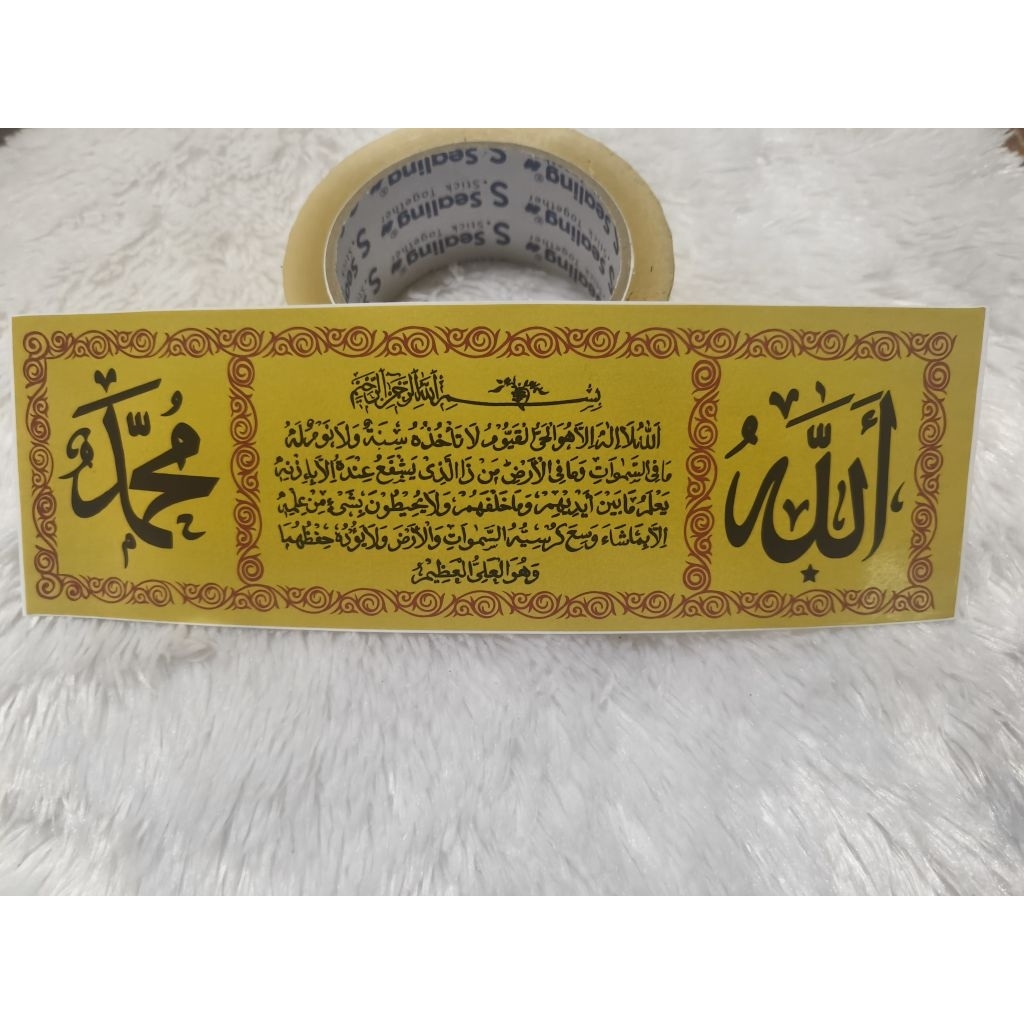 S. Sealing®
Stick Together
S. Sealing®
Stick Together
S. Sealing®
الله
محمد
بسم الله الرحمن الرحيم
الله لا اله الا هو الحي القيوم لا تأخذه سنة ولا نوم له
ما في السموات وما في الأرض من ذا الذي يشفع عنده الا بإذنه
يعلم ما بين أيديهم وما خلفهم ولا يحيطون بشيء من علمه
الا بما شاء وسع كرسيه السموات والأرض ولا يؤده حفظهما
وهو العلي العظيم